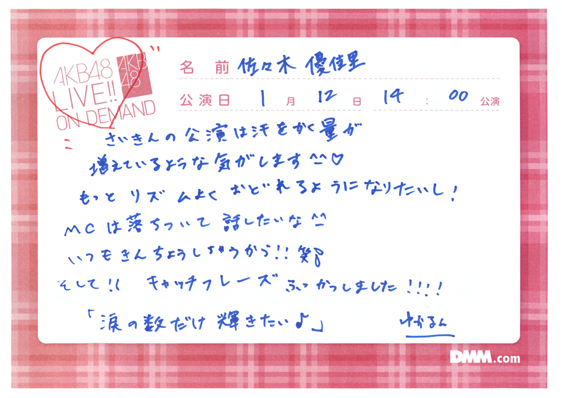 AKB48
LIVE!!
ON DEMAND
AKB
48
名前 佐々木 優佳里
公演日 1月 12日 14:00公演
さいきんの公演は汗をかく量が
増えているような気がします^^♡
もっと リズムよく おどれるようになりたいし!
MCは落ちついて 話したいな^^
いつもきんちょうしちゃうから!!笑
そして!! キャッチフレーズ ふっかつしました!!!!
「涙の数だけ 輝きたいよ♪」 ゆかるん
DMM.com